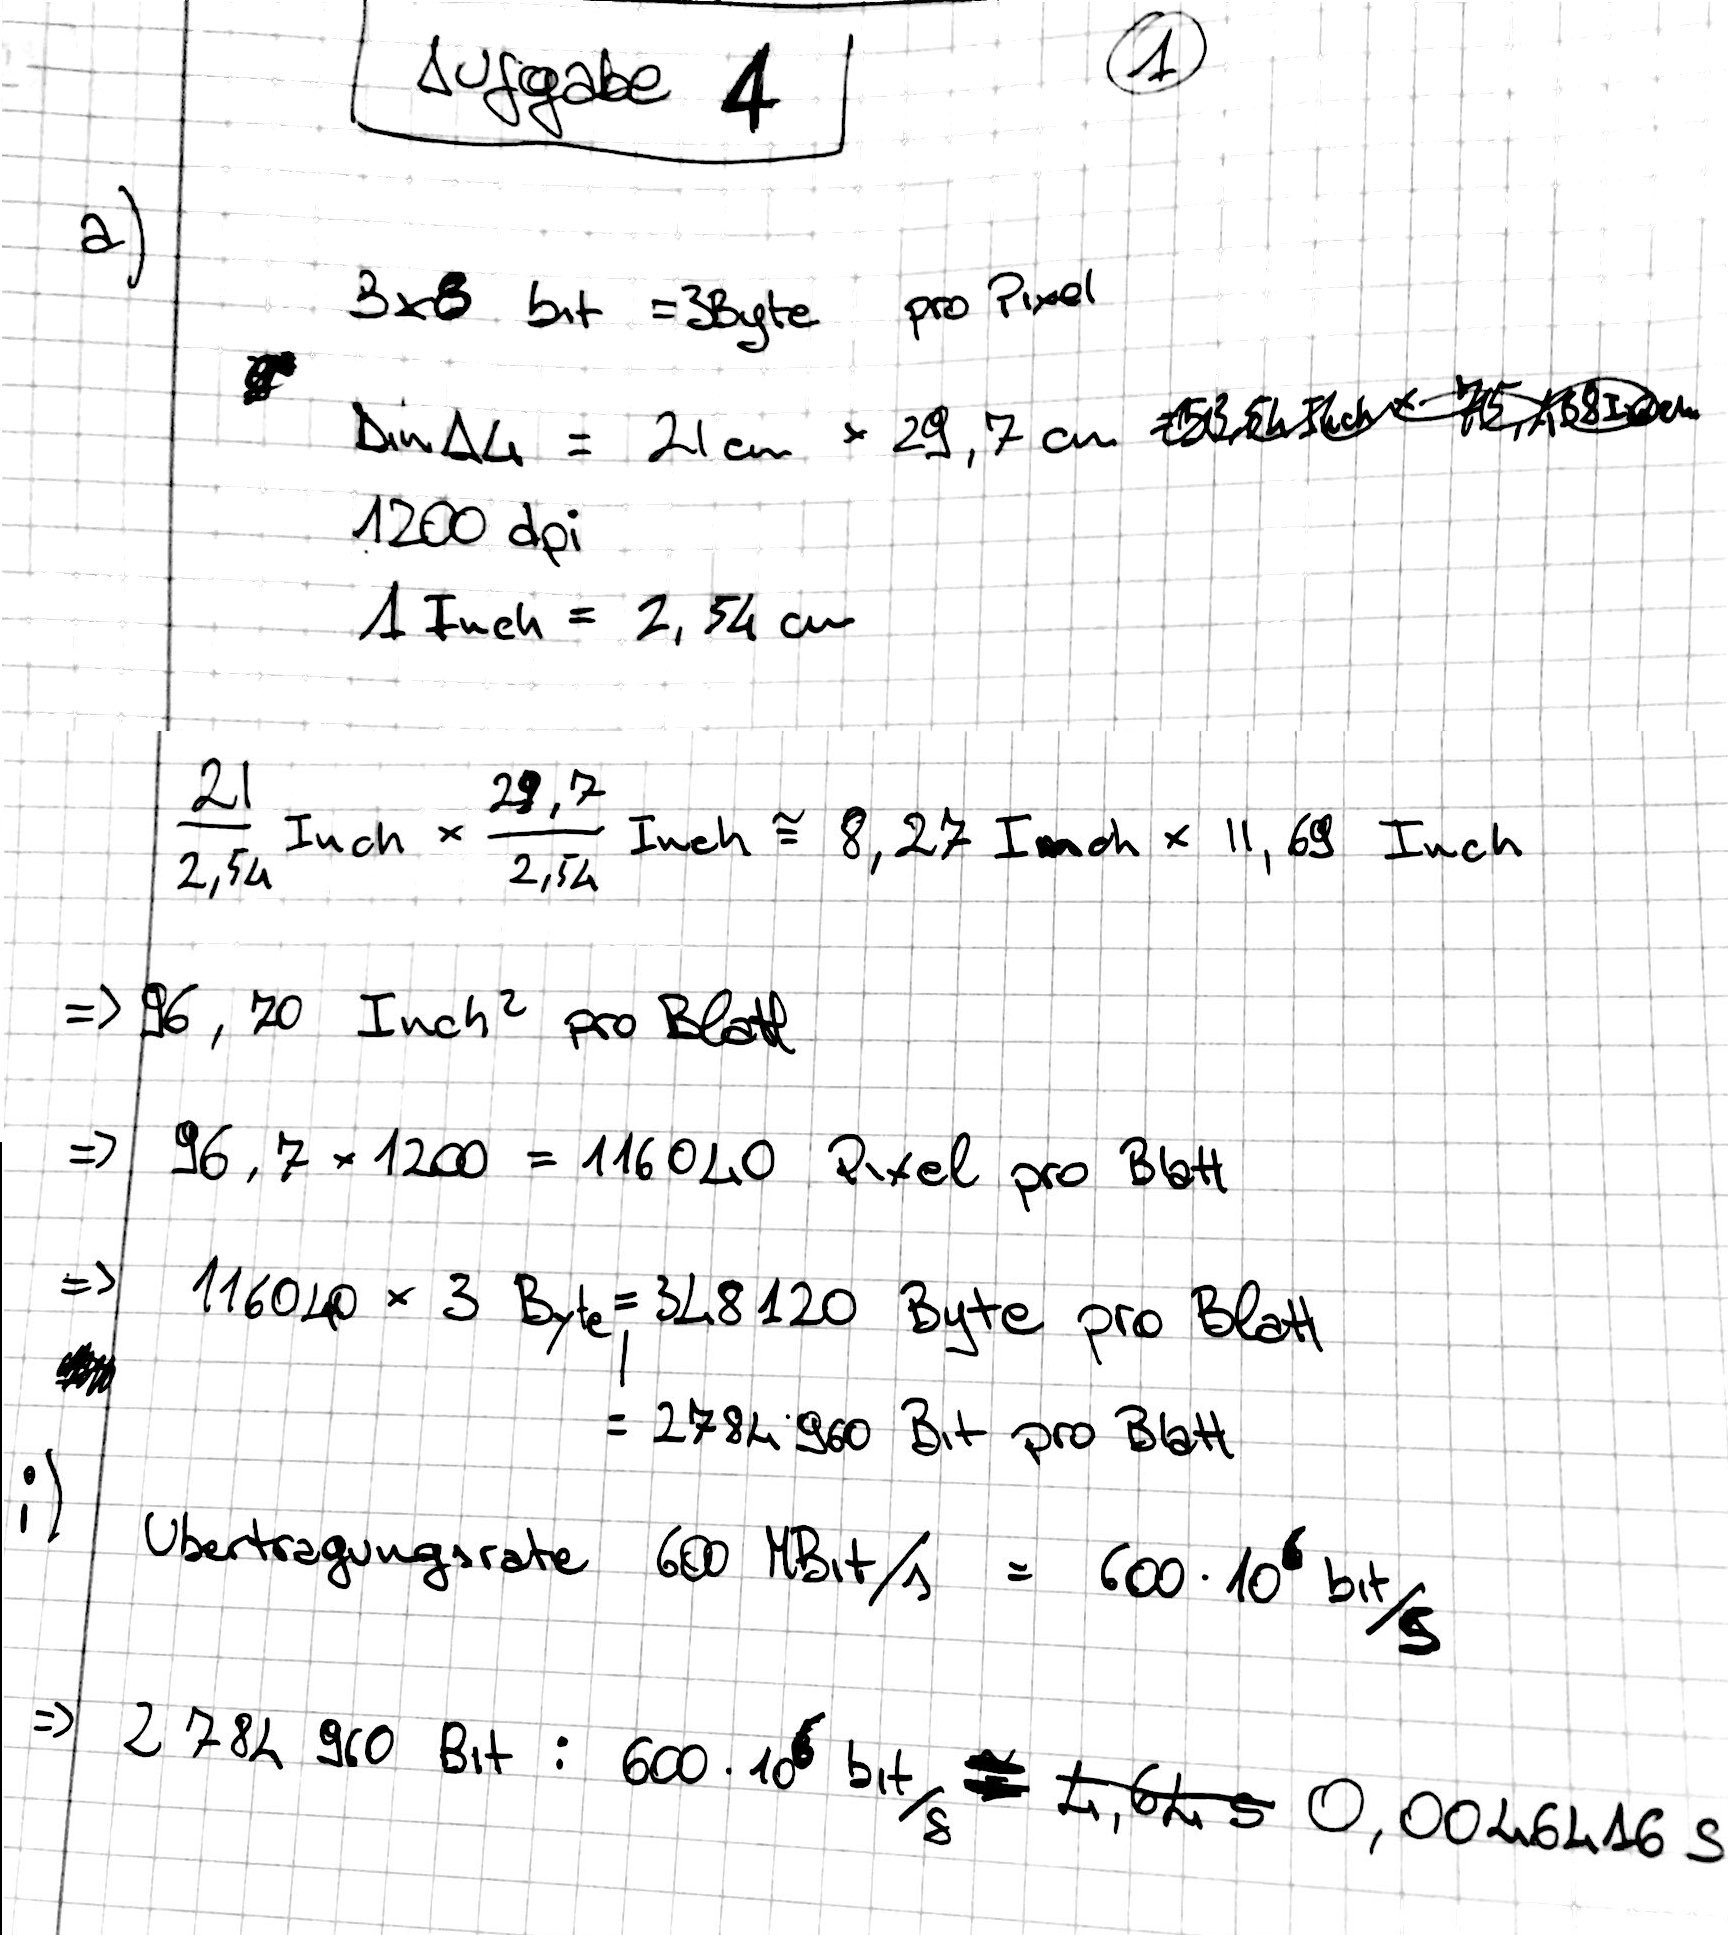 Aufgabe 4
1
a)
3x8 bit = 3Byte pro Pixel
Din A4 = 21 cm × 29,7 cm
1200 dpi
1 Inch = 2,54 cm
21/2,54 Inch × 29,7/2,54 Inch ≅ 8,27 Inch × 11,69 Inch
=> 96,70 Inch² pro Blatt
=> 96,7 × 1200 = 116040 Pixel pro Blatt
=> 116040 × 3 Byte = 348120 Byte pro Blatt
= 2784960 Bit pro Blatt
i)
Übertragungsrate 600 MBit/s = 600·10⁶ bit/s
=> 2784960 Bit : 600·10⁶ bit/s = 4,64 s 0,0046416 s